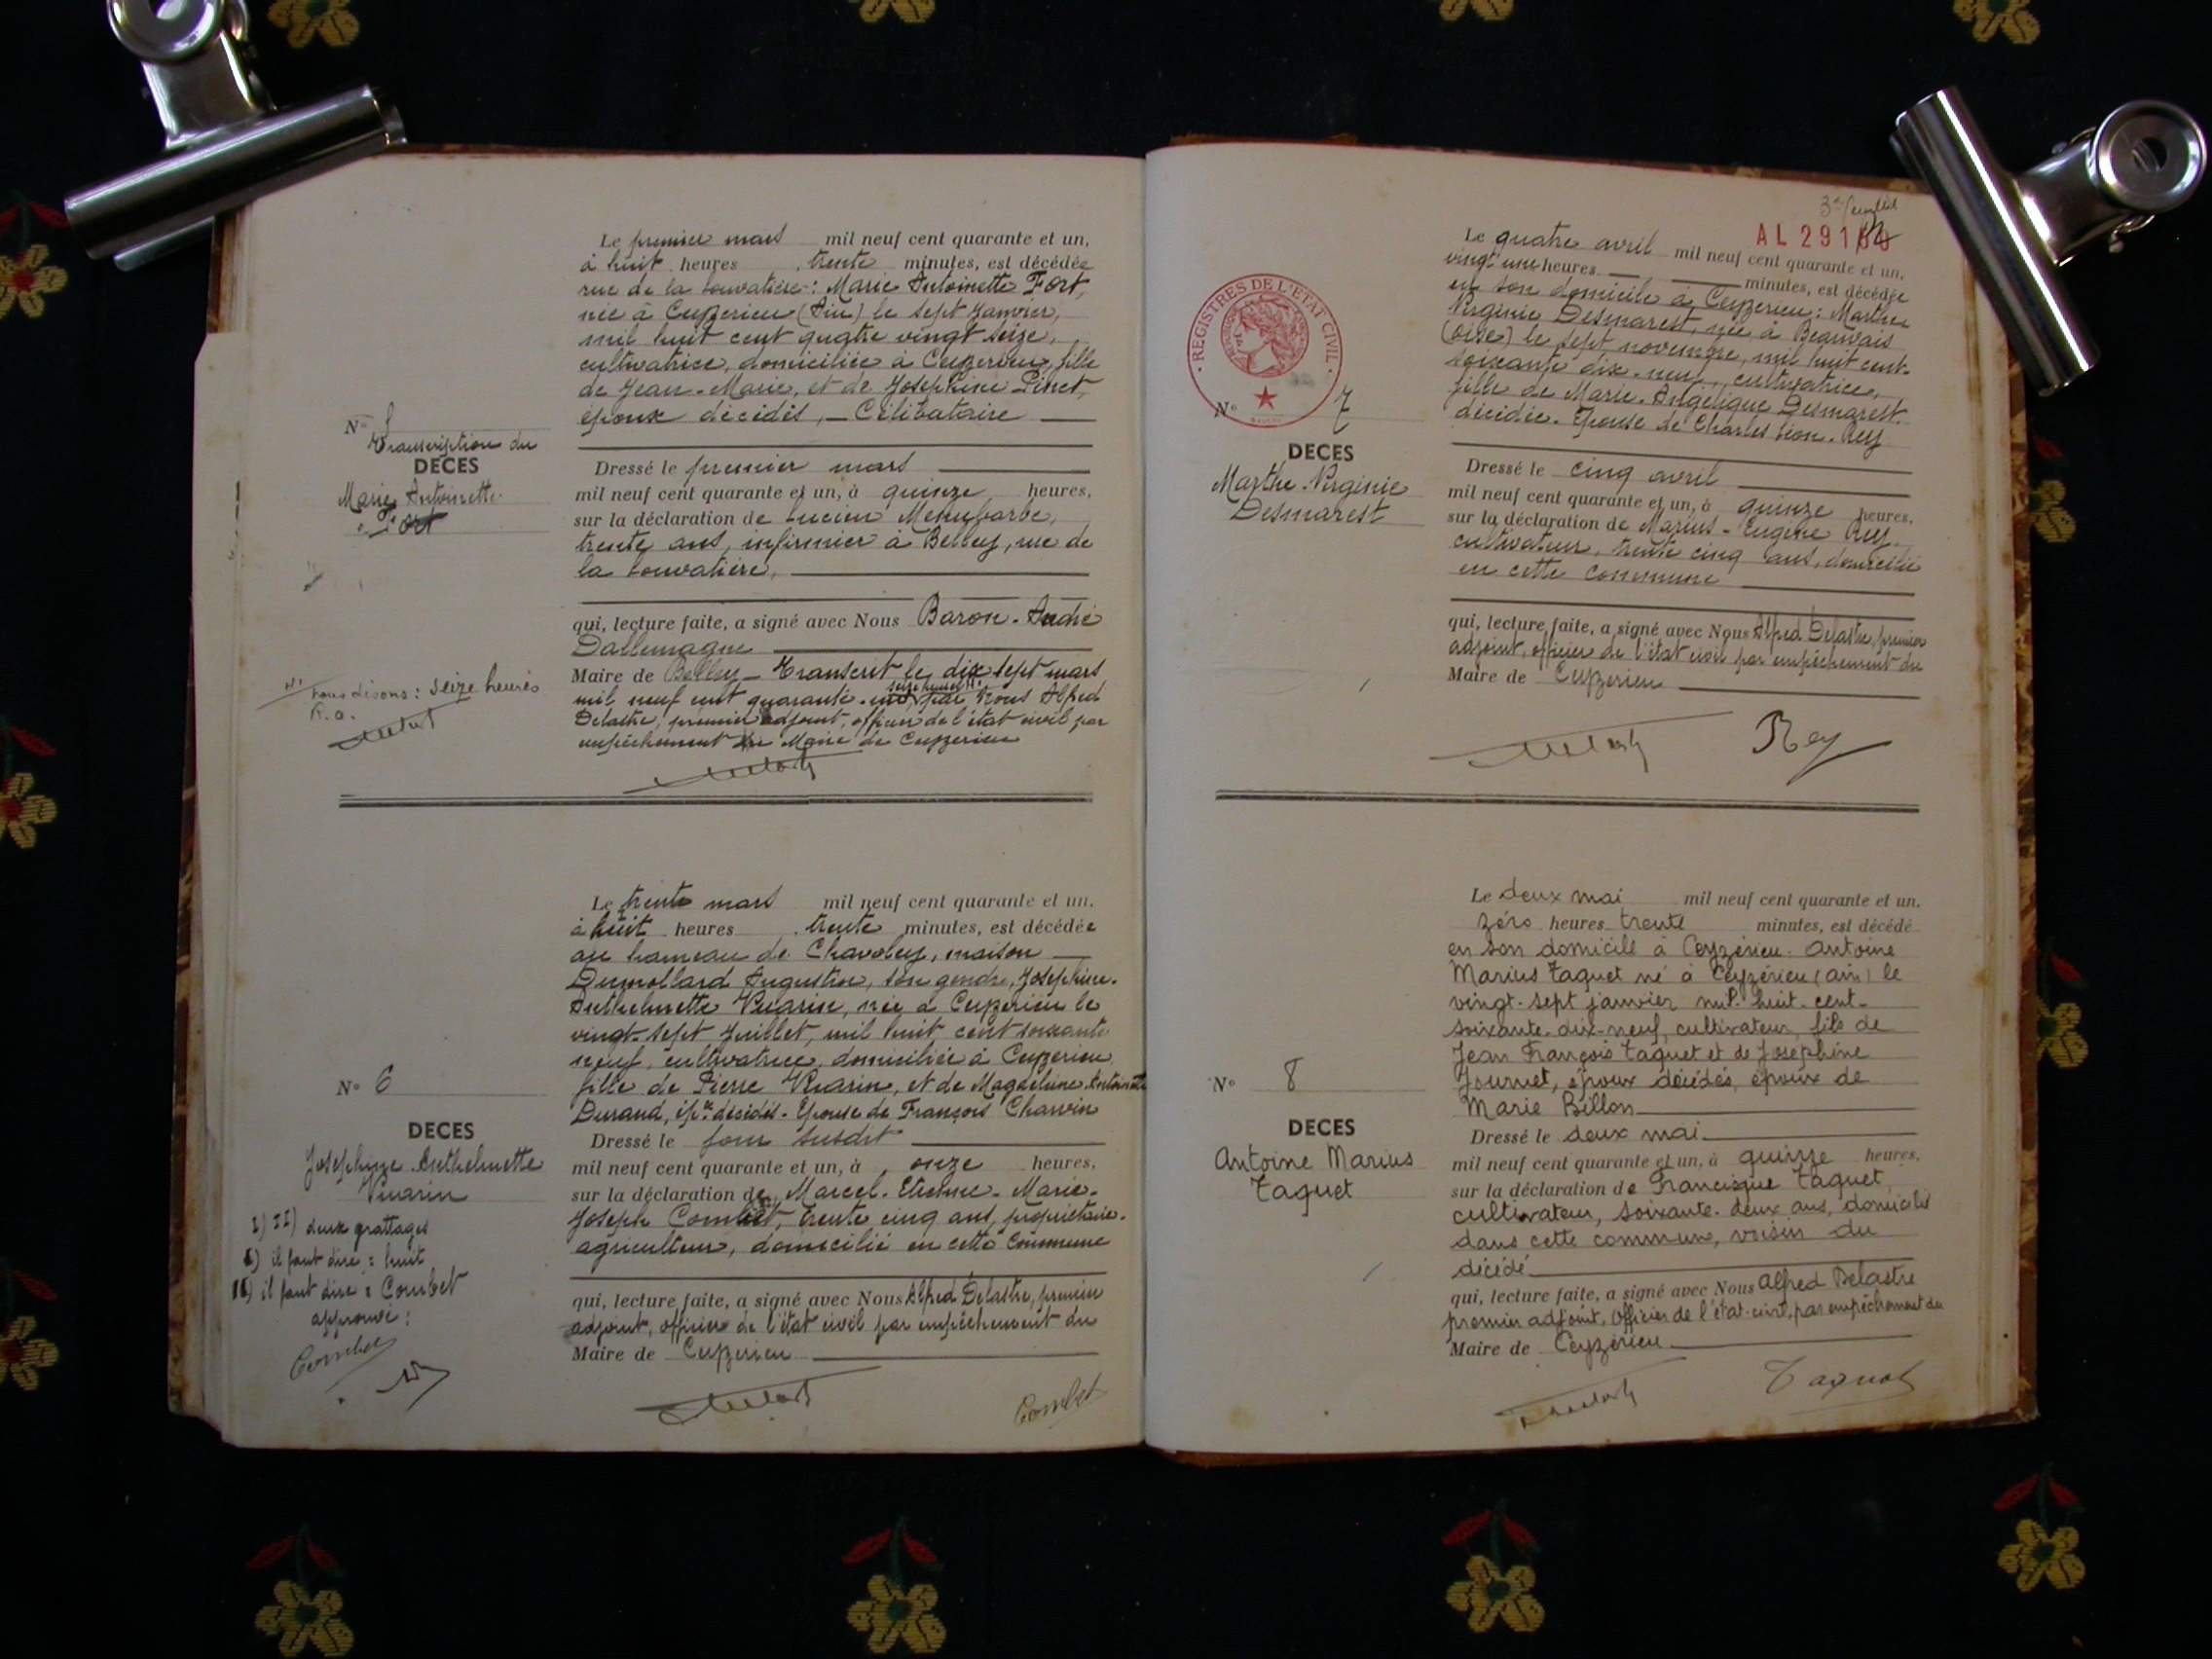 Le premier mars mil neuf cent quarante et un,
à huit heures, trente minutes, est décédée
rue de la Louvatière : Marie Antoinette Fort,
née à Ceyzerieu (Ain) le sept Janvier,
mil huit cent quatre vingt seize,
cultivatrice, domiciliée à Ceyzerieu, fille
de Jean-Marie, et de Joséphine Pinet,
époux décédés, _ Célibataire
N°
Transcription du
DECES
Marie Antoinette
Fort
Dressé le premier mars
mil neuf cent quarante et un, à quinze heures,
sur la déclaration de Lucien
trente ans, infirmier à Belley, rue de
la Louvatière,
qui, lecture faite, a signé avec Nous Baron. André
Dallemagne
Maire de Belley _ Transcrit le dix sept mars
mil neuf cent quarante-un, seize heures par Nous Alfred
Delastre, premier adjoint, officier de l'état civil par
empêchement du Maire de Ceyzerieu
nous disons : seize heures
Le trente mars mil neuf cent quarante et un.
à huit heures, trente minutes, est décédée
au hameau de Chavoley, maison
Dumollard Augustin, son gendre, Joséphine-
Anthelmette Vuarin, née à Ceyzerieu le
vingt-sept Juillet, mil huit cent soixante
neuf, cultivatrice, domiciliée à Ceyzerieu,
fille de Pierre Vuarin, et de Magdeleine Antoinette
Durand, ép.x décédés. Epouse de François Charvin
N° 6
DECES
Joséphine Anthelmette
Vuarin
Dressé le jour susdit
mil neuf cent quarante et un, à onze heures,
sur la déclaration de Marcel-Etienne-Marie-
Joseph Combet, trente cinq ans, propriétaire-
agriculteur, domicilié en cette Commune
I) II) deux grattages
I) il faut dire : huit
II) il faut dire : Combet
approuvé :
Combet
qui, lecture faite, a signé avec Nous Alfred Delastre, premier
adjoint, officier de l'état civil par empêchement du
Maire de Ceyzerieu
Combet
3e feuillet
AL 291
Le quatre avril mil neuf cent quarante et un.
vingt une heures _, _ minutes, est décédée
en son domicile à Ceyzerieu : Marthe
Virginie Desmarest, née à Beauvais
(Oise) le sept novembre, mil huit cent-
soixante dix-neuf, cultivatrice,
fille de Marie-Angélique Desmarest.
décédée. Epouse de Charles Léon-Rey
REGISTRES DE L'ETAT CIVIL
N° 7
DECES
Marthe-Virginie
Desmarest
Dressé le cinq avril
mil neuf cent quarante et un, à quinze heures,
sur la déclaration de Marius-Eugène Rey
cultivateur, trente cinq ans, domicilié
en cette commune
qui, lecture faite, a signé avec Nous Alfred Delastre, premier
adjoint, officier de l'état civil par empêchement du
Maire de Ceyzerieu
Rey
Le deux mai mil neuf cent quarante et un,
zéro heures trente minutes, est décédé
en son domicile à Ceyzérieu. Antoine
Marius Taguet né à Ceyzérieu (Ain) le
vingt-sept janvier mil-huit-cent-
soixante-dix-neuf, cultivateur, fils de
Jean François Taguet et de Joséphine
Journet, époux décédés, époux de
Marie Billon
N° 8
DECES
Antoine Marius
Taguet
Dressé le deux mai
mil neuf cent quarante et un, à quinze heures,
sur la déclaration de Francisque Taguet
cultivateur, soixante-deux ans, domicilié
dans cette commune, voisin du
décédé
qui, lecture faite, a signé avec Nous Alfred Delastre
premier adjoint, Officier de l'état-civil, par empêchement du
Maire de Ceyzérieu
Taguet